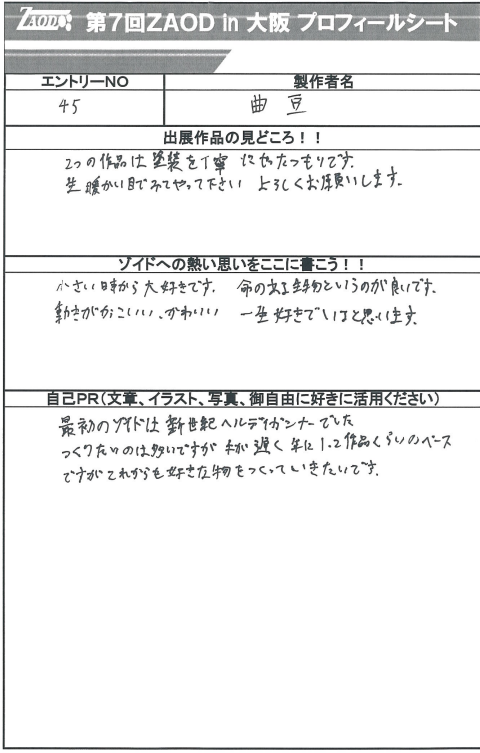 ZAOD 第7回ZAOD in 大阪 プロフィールシート
エントリーNO 製作者名
45 曲豆
出展作品の見どころ！！
2つの作品は塗装を丁寧にやったつもりです。
生暖かい目でみてやって下さい よろしくお願いします。
ゾイドへの熱い思いをここに書こう！！
小さい時から大好きです。 命のある生物というのが良いです。
動きがかっこいい、かわいい 一生好きでいると思います。
自己PR(文章、イラスト、写真、御自由に好きに活用ください)
最初のゾイドは新世紀ヘルディガンナーでした
つくりたいのは多いですが 私が遅く 年に1〜2作品くらいのペース
ですがこれからも好きな物をつくっていきたいです。